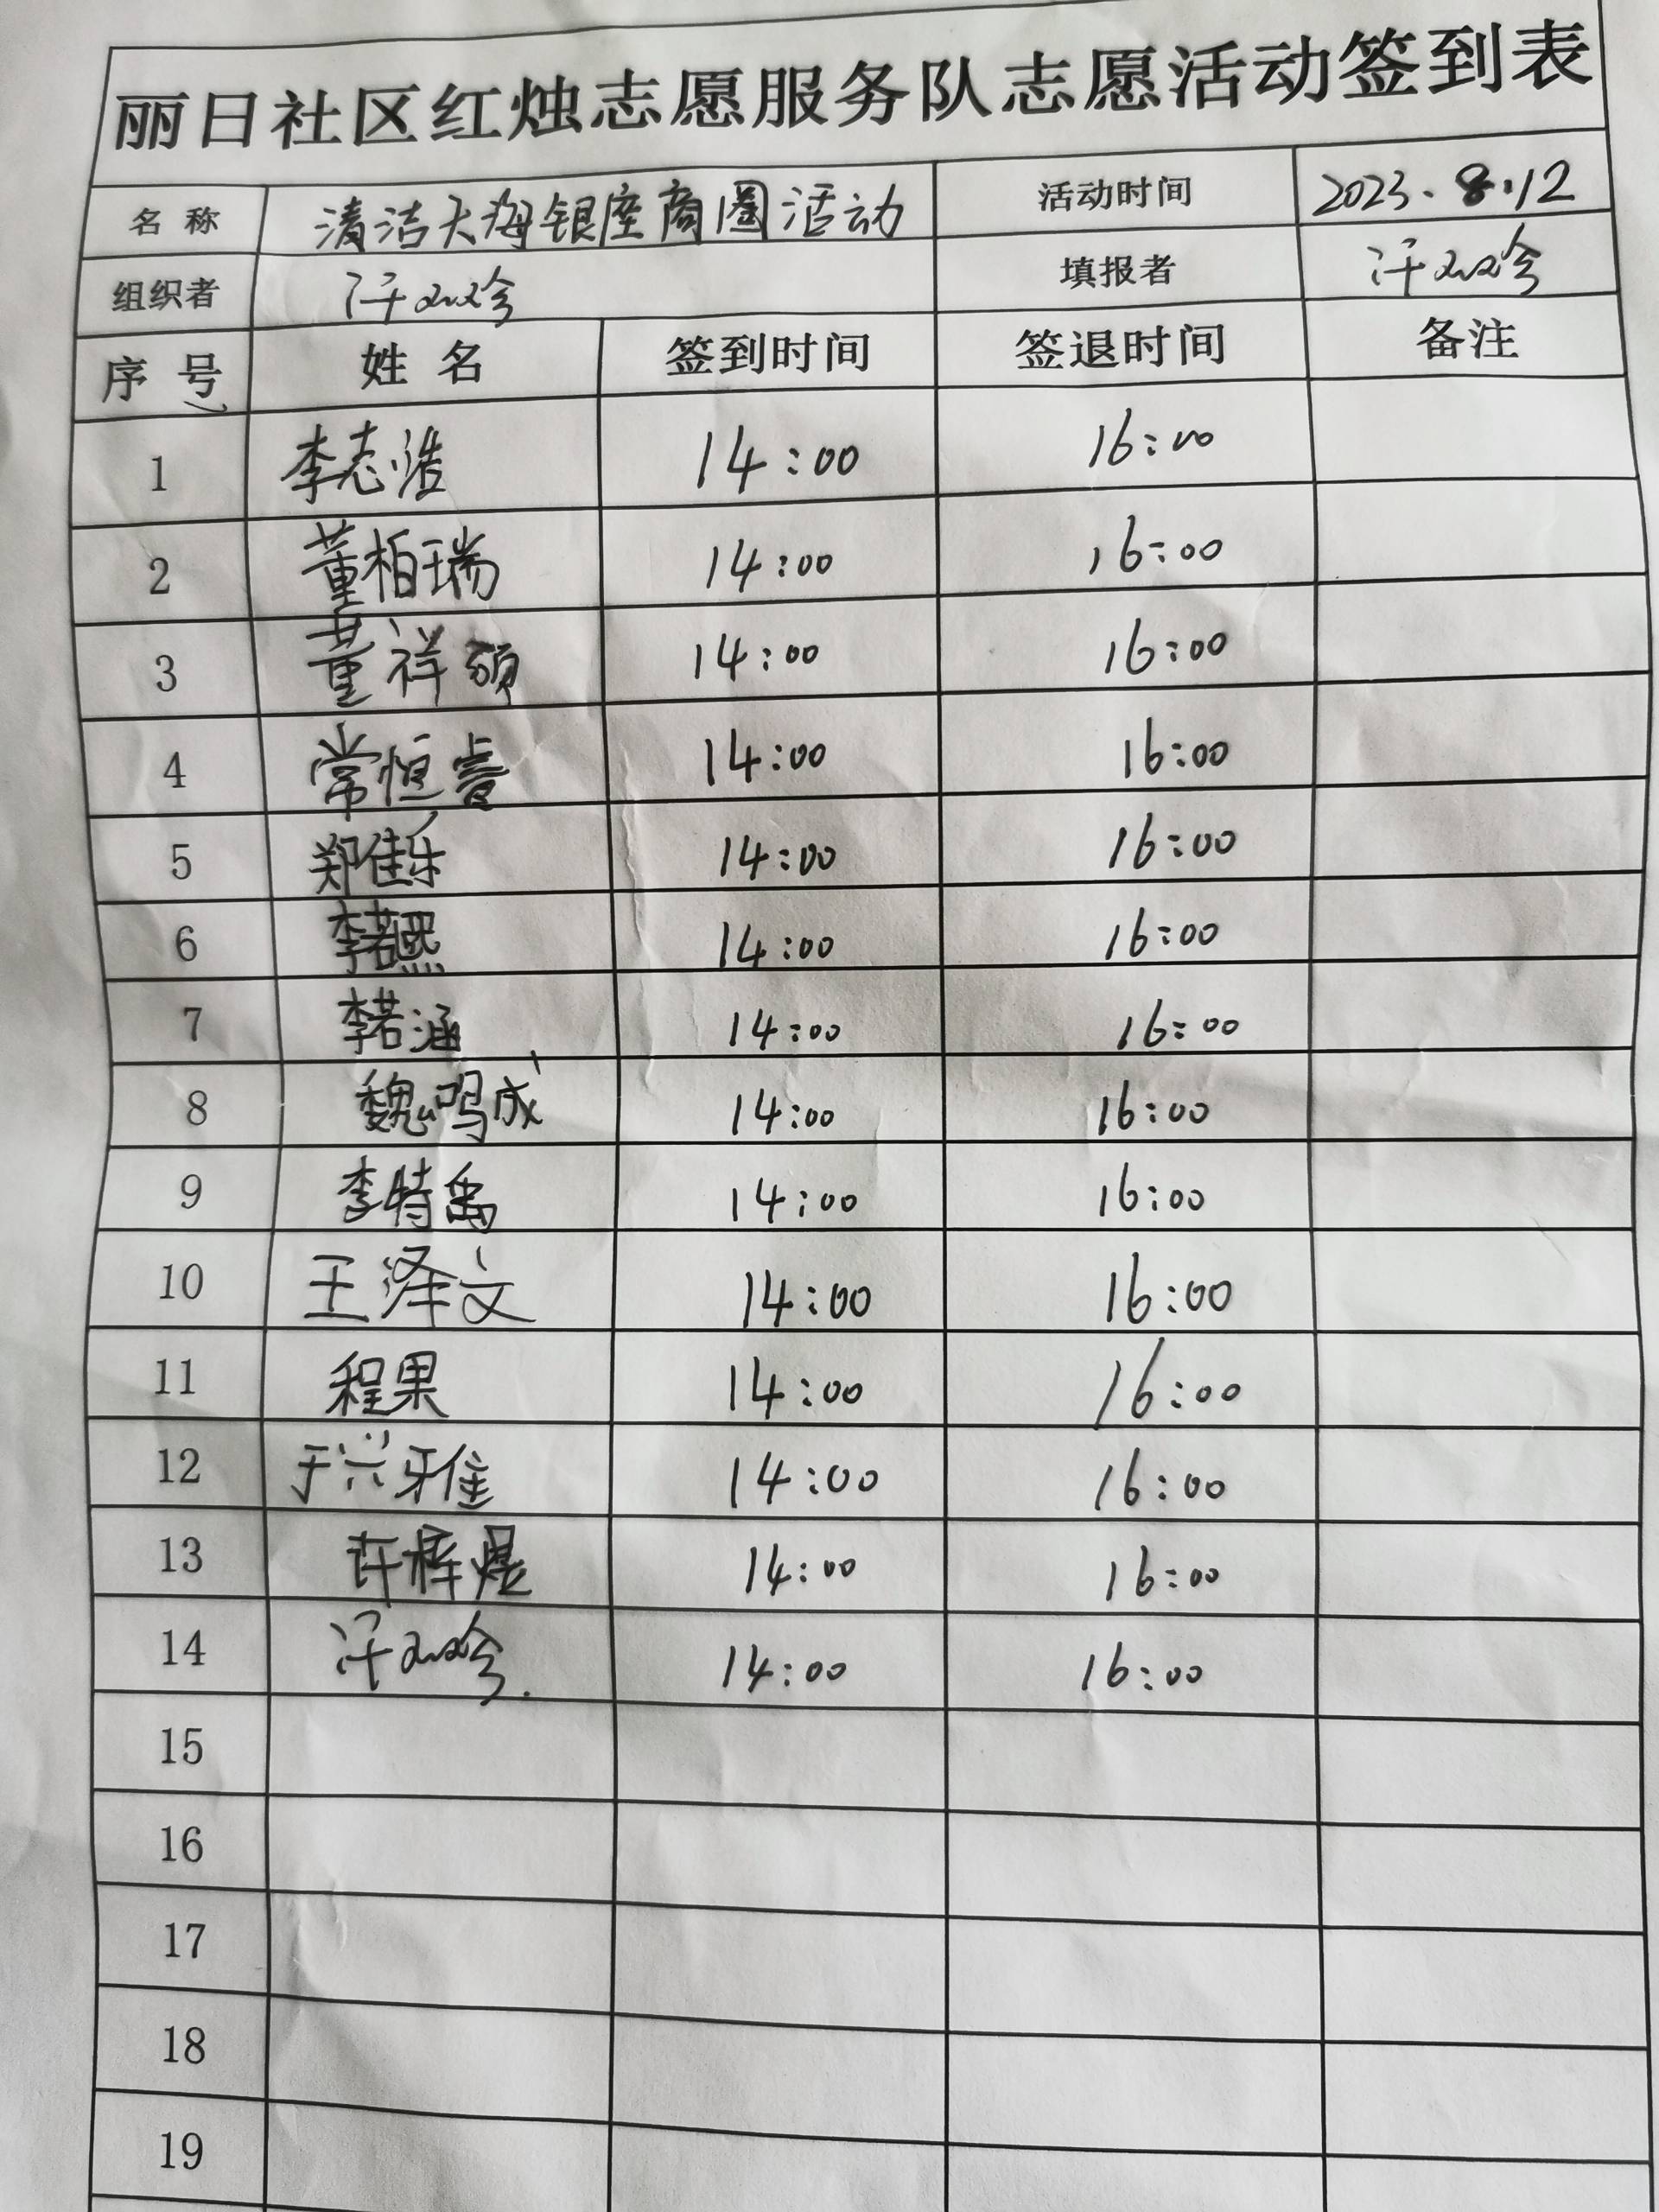 丽日社区红烛志愿服务队志愿活动签到表
名 称 清洁大海银座商圈活动 活动时间 2023.8.12
组织者 填报者
序 号 姓 名 签到时间 签退时间 备注
1 李志浩 14:00 16:00
2 董柏瑞 14:00 16:00
3 董祥硕 14:00 16:00
4 常恒睿 14:00 16:00
5 郑佳乐 14:00 16:00
6 李若熙 14:00 16:00
7 李若涵 14:00 16:00
8 魏鸣成 14:00 16:00
9 李特禹 14:00 16:00
10 王泽文 14:00 16:00
11 程果 14:00 16:00
12 于兴雅 14:00 16:00
13 许梓煜 14:00 16:00
14 14:00 16:00
15
16
17
18
19